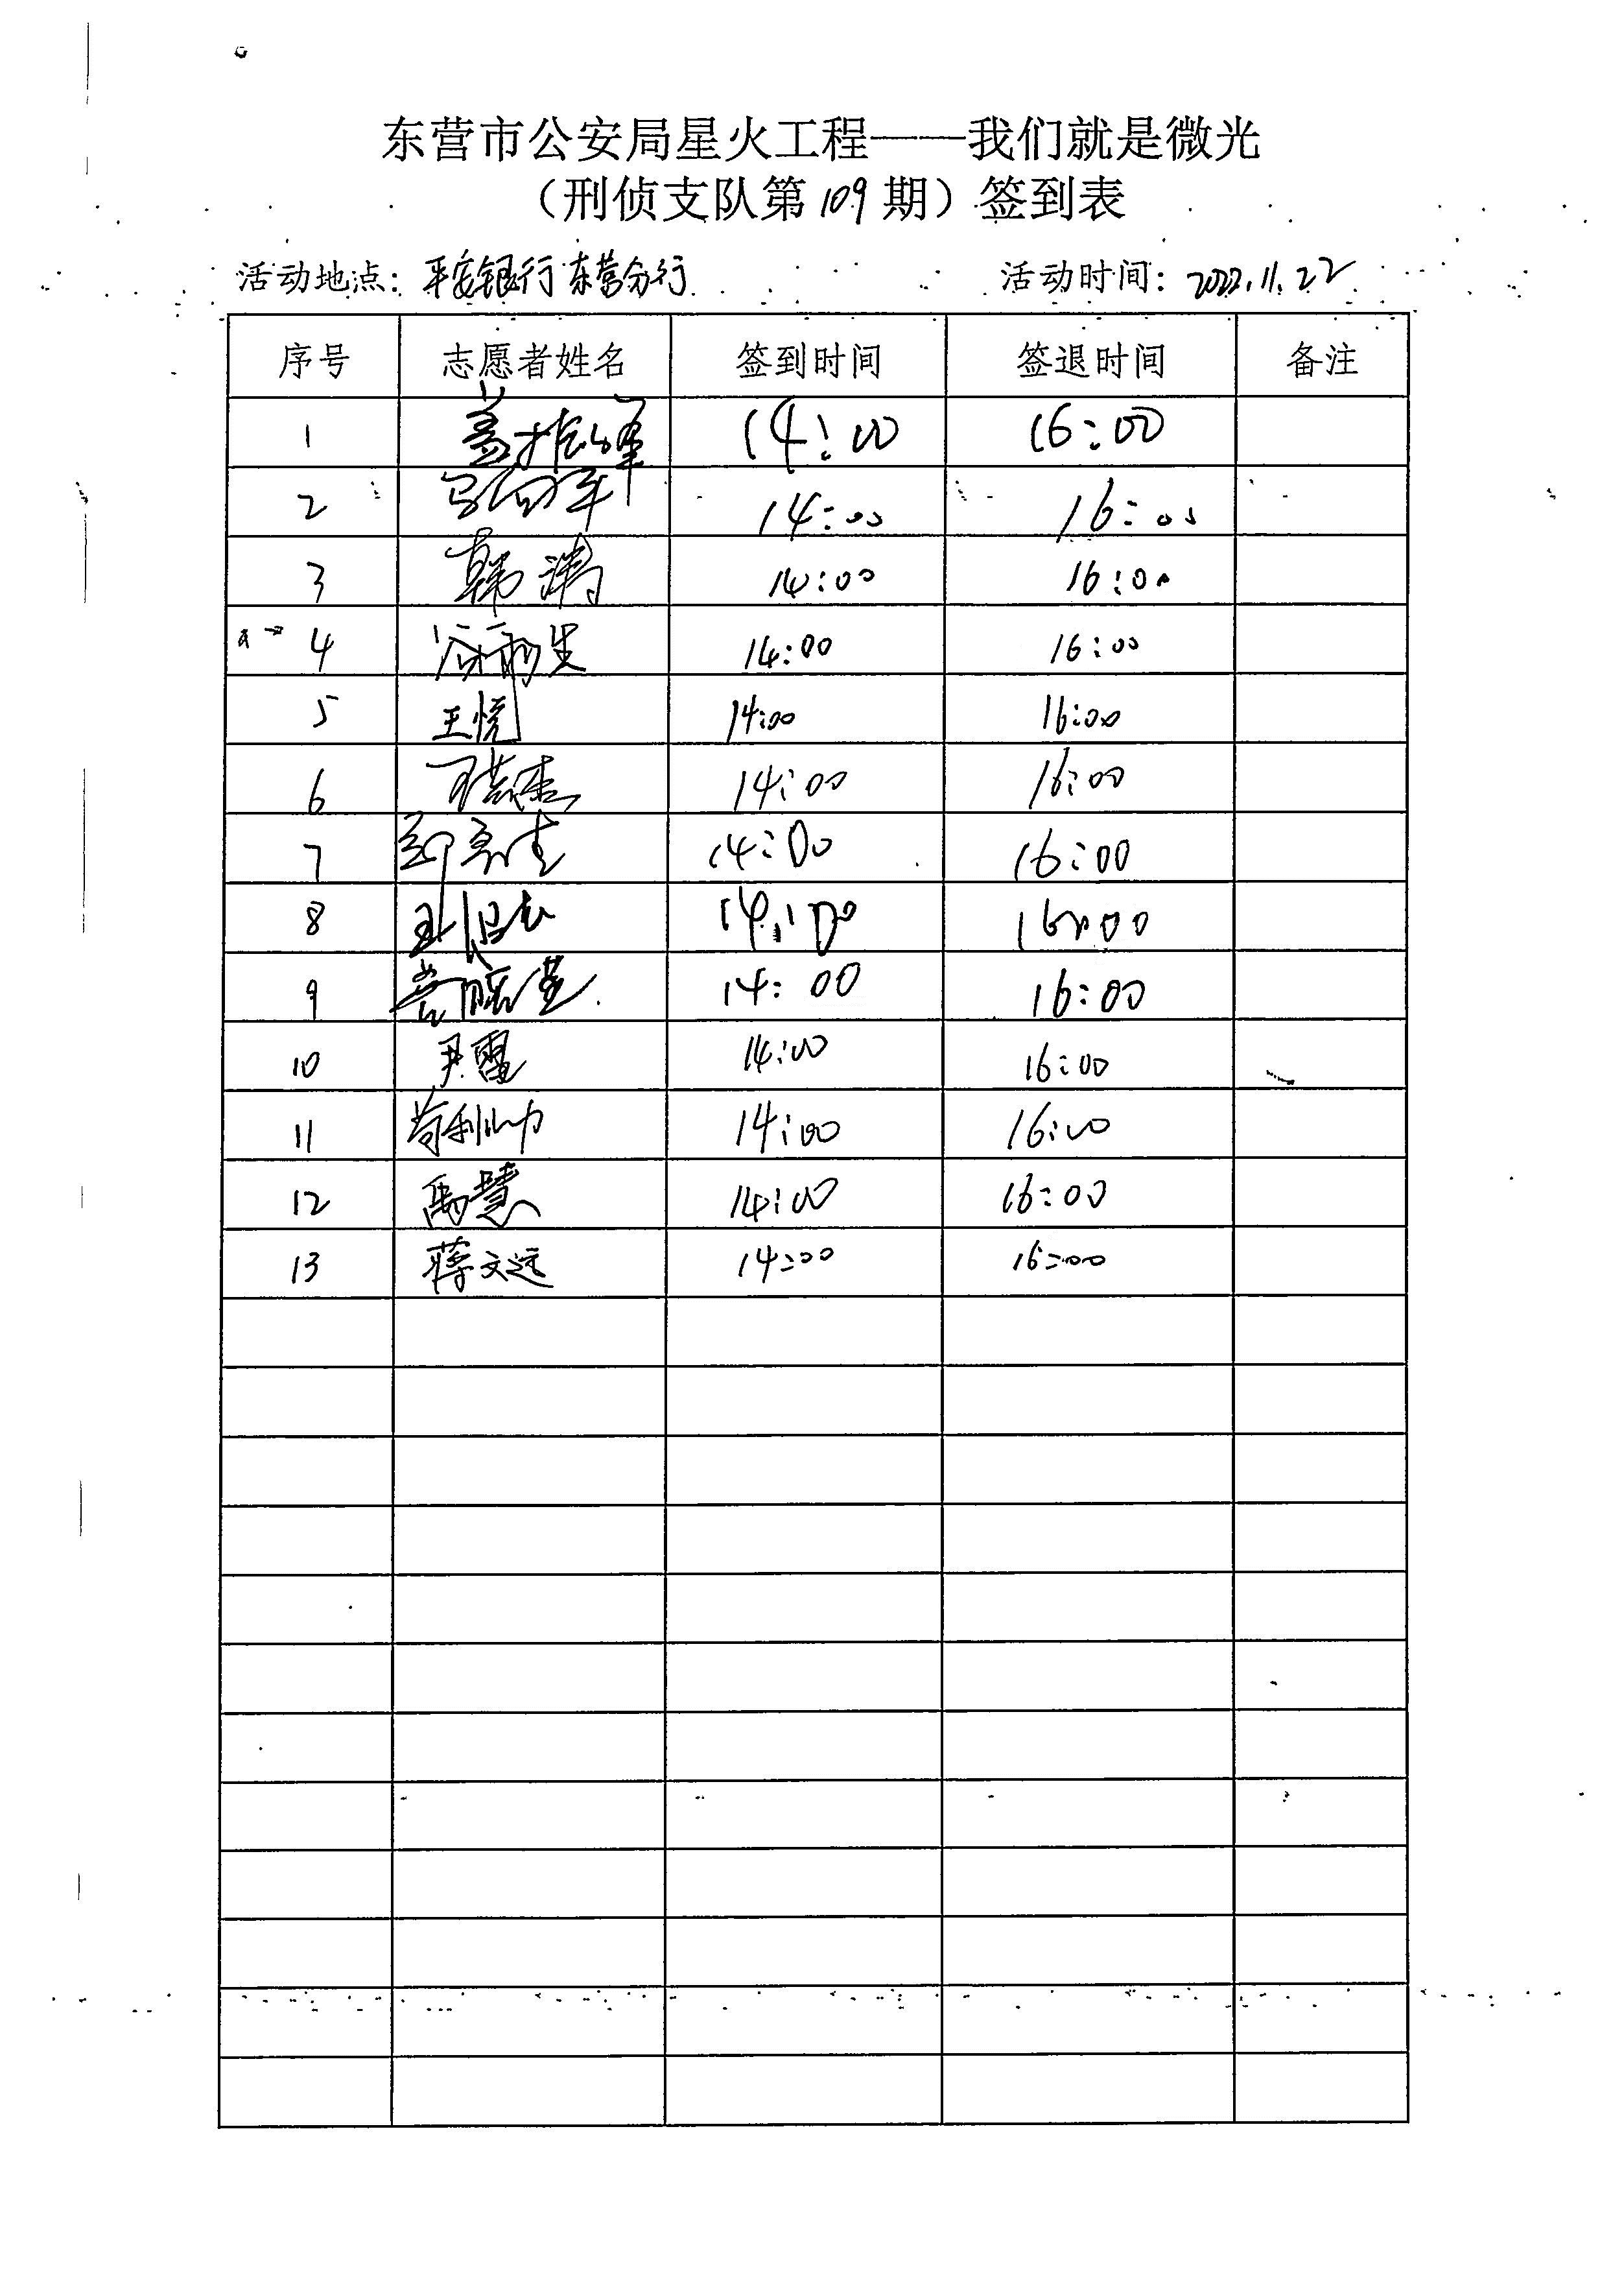 东营市公安局星火工程——我们就是微光
（刑侦支队第109期）签到表
活动地点：平安银行东营分行 活动时间：2022.11.22
序号 志愿者姓名 签到时间 签退时间 备注
1 盖振峰 14:00 16:00
2 14:00 16:00
3 韩涛 14:00 16:00
4 14:00 16:00
5 王悦 14:00 16:00
6 14:00 16:00
7 14:00 16:00
8 14:00 16:00
9 14:00 16:00
10 尹雷 14:00 16:00
11 14:00 16:00
12 禹慧 14:00 16:00
13 蒋文远 14:00 16:00